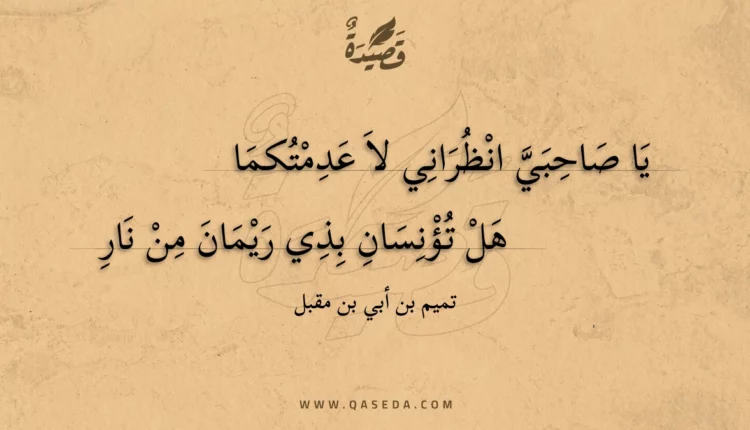 قَصِيْدَةٌ
يَا صَاحِبَيَّ انْظُرَانِي لاَ عَدِمْتُكمَا
هَلْ تُؤْنِسَانِ بِذِي رَيْمَانَ مِنْ نَارِ
تميم بن أبي بن مقبل
WWW.QASEDA.COM